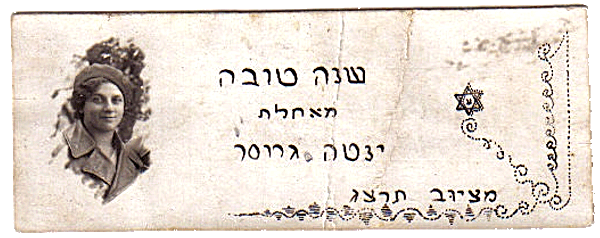 שנה טובה
מאחלת
ינטה גריסר
מציוב תרצג